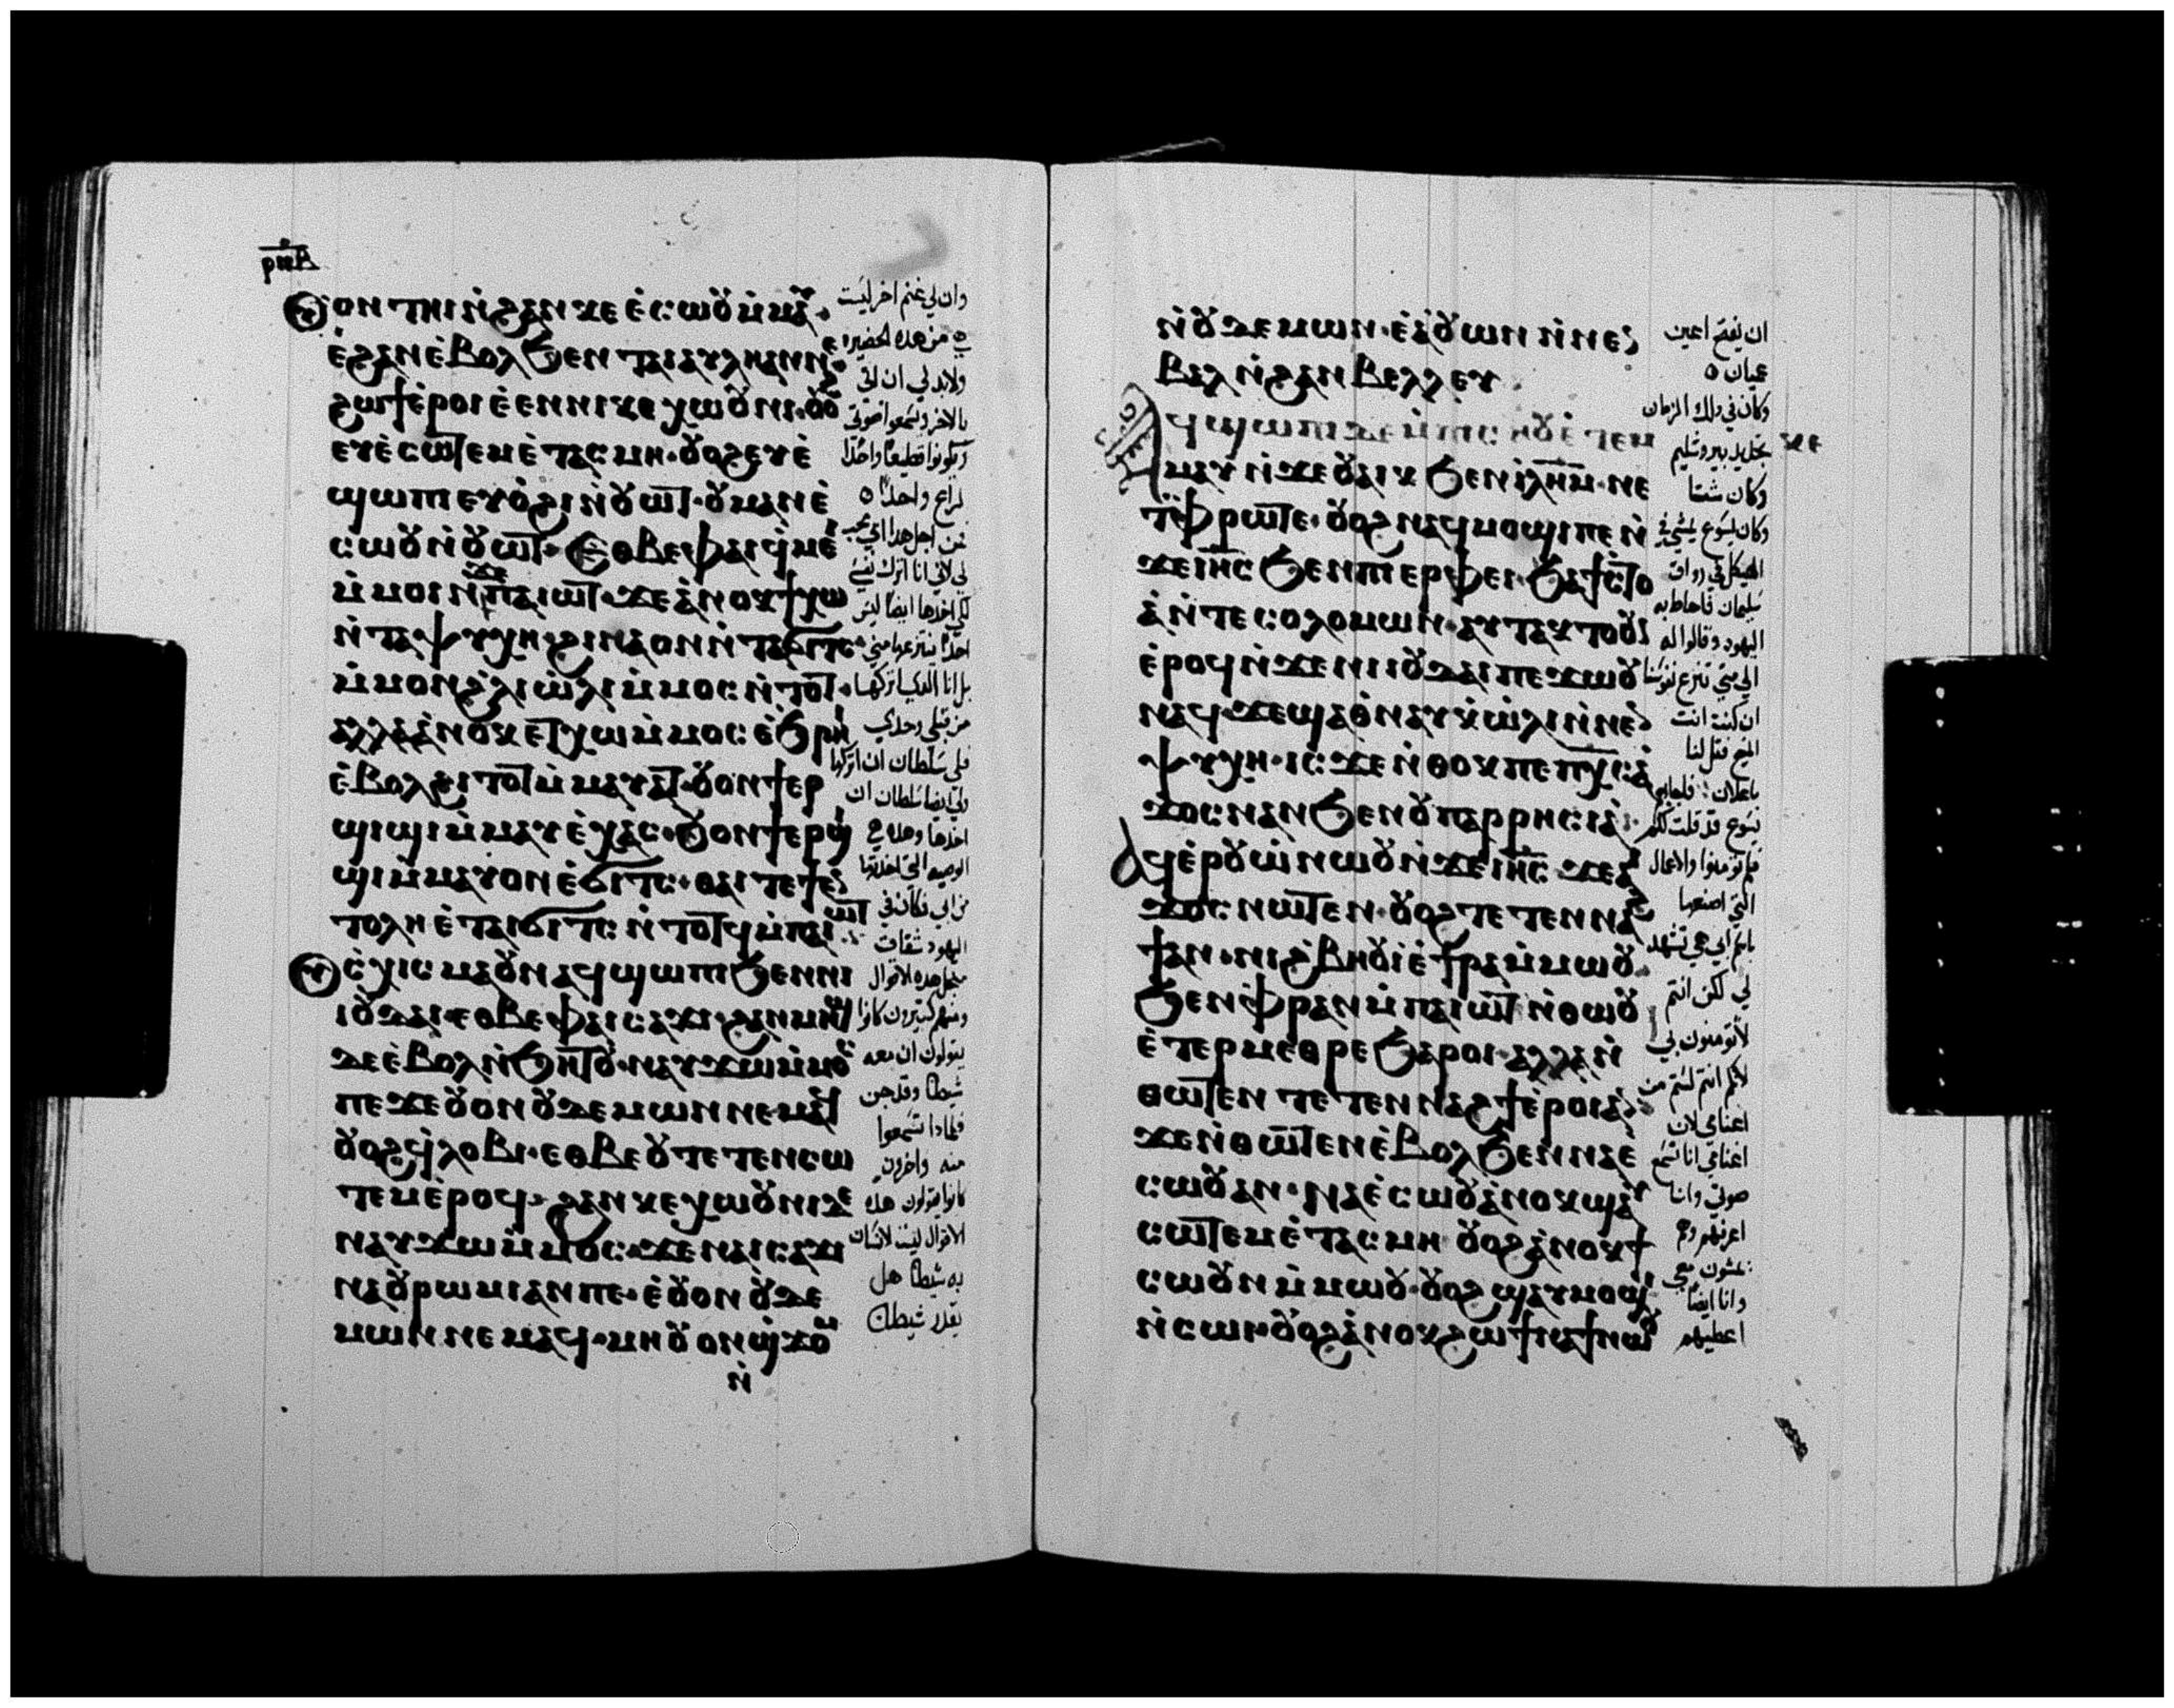 ⲟⲩⲟⲛ ⲧⲏⲓ ⲛ̇ϩⲁⲛⲕⲉ ⲉ̇ⲥⲱⲟⲩ ⲙ̇ⲙⲁⲩ·
ⲉ̇ϩⲁⲛⲉ̇ⲃⲟⲗ ϧⲉⲛ ⲧⲁⲓⲁⲩⲗⲏ ⲁⲛⲛⲉ·
ϩⲱϯ ⲉ̇ⲣⲟⲓ ⲉ̇ⲉⲛ ⲛⲓⲕⲉⲭⲱⲟⲩⲛⲓ· ⲟⲩⲟϩ
ⲉⲩⲉ̇ⲥⲱⲧⲉⲙ ⲉ̇ⲧⲁⲥⲙⲏ· ⲟⲩⲟϩ ⲉⲩⲉ̇
ϣⲱⲡⲓ ⲉⲩⲟ̇ϩⲓ ⲛ̇ⲟⲩⲱⲧ· ⲟⲩⲙⲁⲛⲉ̇
ⲥⲱⲟⲩ ⲛ̇ⲟⲩⲱⲧ· ⲉⲑⲃⲉⲫⲁⲓ ϥ̇ⲙⲉⲓ
ⲙ̇ⲙⲟⲓ ⲛ̇ϫⲉⲡⲁⲓⲱⲧ· ϫⲉⲁ̇ⲛⲟⲕ ϯⲭⲱ
ⲛ̇ⲧⲁⲯⲩⲭⲏ· ϩⲓⲛⲁ ⲟⲛ ⲛ̇ⲧⲁϭⲓⲧⲥ·
ⲙ̇ⲙⲟⲛ ϩ̇ⲗⲓ ⲱ̇ⲗⲓ ⲙ̇ⲙⲟⲥ ⲛ̇ⲧⲟⲧ·
ⲁⲗⲗⲁ ⲁ̇ⲛⲟⲕ ⲉⲧⲭⲱ ⲙ̇ⲙⲟⲥ ⲉ̇ϧⲣⲏⲓ
ⲉ̇ⲃⲟⲗϩⲓⲧⲟⲧ ⲙ̇ⲙⲁⲩⲁⲧ· ⲟⲩⲟⲛϯⲉⲣ
ϣⲓϣⲓ ⲙ̇ⲙⲁⲩ ⲉ̇ⲭⲁⲥ· ⲟⲩⲟⲛϯⲉⲣ
ϣⲓϣⲓ ⲙ̇ⲙⲁⲩ ⲟⲛ ⲉ̇ϭⲓⲧⲥ· ⲑⲁⲓ ⲧⲉ ϯⲉⲛ
ⲧⲟⲗⲏ ⲉ̇ⲧⲁⲓϭⲓⲧⲥ ⲛ̇ⲧⲟⲧϥ ⲙ̇ⲡⲁⲓⲱⲧ
ⲟⲩⲥ̇ⲭⲓⲥⲙⲁ ⲟⲩⲛ ⲁϥϣⲱⲡⲓ ϧⲉⲛⲛⲓ
ⲓⲟⲩⲇⲁⲓ· ⲉⲑⲃⲉⲫⲁⲓⲥⲁϫⲓ· ϩⲁⲛⲙⲏϣ
ⲇⲉ ⲉ̇ⲃⲟⲗ ⲛ̇ϧⲏⲧⲟⲩ· ⲛⲁⲩϫⲱ ⲙ̇ⲙⲟⲥ
ⲡⲉ ϫⲉ ⲟⲩⲟⲛ ⲟⲩⲇⲉⲙⲱⲛ ⲛⲉⲙⲁϥ
ⲟⲩⲟϩ ϥ̇ⲗⲟⲃⲓ· ⲉⲑⲃⲉⲟⲩ ⲧⲉⲧⲉⲛⲥⲱ
ⲧⲉⲙ ⲉ̇ⲣⲟϥ· ϩⲁⲛⲕⲉⲭⲱⲟⲩⲛⲓ ⲇⲉ
ⲛⲁⲩϫⲱ ⲙ̇ⲙⲟⲥ ϫⲉ ⲛⲁⲓⲥⲁϫⲓ
ⲛⲁ ⲟⲩⲣⲱⲙⲓ ⲁⲛ ⲡⲉ· ⲉ̇ⲟⲩⲟⲛ ⲟⲩⲇⲉ
ⲙⲱⲛ ⲛⲉⲙⲁϥ· ⲙⲏ ⲟⲩⲟⲛ ϣ̇ϫⲟⲙ
ⲛ̇
وان لي غنم اخر ليست
من هده الحضيره
ولابد لي ان اتي
بالاخر وتسمعوا صوتي
لراع واحدا
من اجل هدا ابي يحب
لي لاني انا اترك نفسي
لكي اخدها ايضا ليس
احدا ينتزعها مني
بل انا الدي اتركها
من قبلي وحدي
فلي سلطان ان اتركها
ولي ايضا سلطان ان
اخدها وهده هي
الوصيه التي اخدتها
من ابي فكان في
اليهود شقاق
من اجل هده الاقوال
ومنهم كتيرون كانوا
يقولون ان معه
شيطانا وقد جن
فلمادا تسمعوا
منه واخرون
كانوا يقولون هده
الاقوال ليست لانسان
به شيطانا هل
يقدر شيطان
ⲛ̇ⲟⲩⲇⲉⲙⲱⲛ· ⲉ̇ⲁ̇ⲟⲩⲱⲛ ⲛ̇ⲛⲉⲛ
ⲃⲁⲗ ⲛ̇ϩⲁⲛⲃⲉⲗⲗⲉⲩ·
ⲁϥϣⲱⲡⲓ ⲇⲉ ⲙ̇ⲡⲓⲥⲏⲟⲩ ⲉ̇ⲧⲉⲙ
ⲙⲁⲩ ⲛ̇ϫⲉ ⲟⲩⲁⲓⲕ ϧⲉⲛ ⲓⲗⲏⲙ· ⲛⲉ
ⲧⲉⲫⲣⲱⲧⲉ· ⲟⲩⲟϩ ⲛⲁϥⲙⲟϣⲓ ⲡⲉ ⲛ̇
ϫⲉ ⲓⲏⲥ ϧⲉⲛ ⲡⲓⲉⲣⲫⲉⲓ· ϧⲁϯⲥⲧⲟ
ⲁ̇ ⲛ̇ⲧⲉ ⲥⲟⲗⲟⲙⲱⲛ· ⲁⲩⲧⲁⲕⲧⲟⲟⲩ
ⲉ̇ⲣⲟϥ ⲛ̇ϫⲉ ⲛⲓⲓⲟⲩⲇⲁⲓ ⲡⲉϫⲱⲟⲩ
ⲛⲁϥ· ϫⲉ ϣⲁⲑ̇ⲛⲁⲩ ⲕ̇ⲱ̇ⲗⲓ ⲛ̇ⲛⲉⲛ
ⲯⲩⲭⲏ· ⲓⲥϫⲉ ⲛ̇ⲑⲟⲕ ⲡⲉ ⲡⲭⲥ ⲁ
ϫⲟⲥ ⲛⲁⲛ ϧⲉⲛ ⲟⲩⲡⲁⲣⲣⲏⲥⲓⲁ·
ⲁϥⲉ̇ⲣⲟⲩⲱ̇ ⲛⲱⲟⲩ ⲛ̇ϫⲉ ⲓⲏⲥ ϫⲉ ⲁⲓ
ϫⲟⲥ ⲛⲱⲧⲉⲛ· ⲟⲩⲟϩ ⲧⲉⲧⲉⲛⲛⲁϩ
ϯ ⲁⲛ· ⲛⲓϩ̇ⲃⲏⲟⲩⲓ ⲉ̇ϯⲣⲁ ⲙ̇ⲙⲱⲟⲩ·
ϧⲉⲛ ⲫ̇ⲣⲁⲛ ⲙ̇ⲡⲁⲓⲱⲧ ⲛ̇ⲑⲱⲟⲩ
ⲉ̇ⲧⲉⲣⲙⲉⲑⲣⲉ ϧⲁⲣⲟⲓ· ⲁⲗⲗⲁ ⲛ̇
ⲑⲱⲧⲉⲛ ⲧⲉⲧⲉⲛⲛⲁϩϯ ⲉ̇ⲣⲟⲓ ⲁⲛ·
ϫⲉ ⲛ̇ⲑⲱⲧⲉⲛ ⲉ̇ⲃⲟⲗ ϧⲉⲛ ⲛⲁⲉ̇
ⲥⲱⲟⲩ ⲁⲛ· ⲛⲁⲉ̇ⲥⲱⲟⲩ ⲁ̇ⲛⲟⲕ ϣⲁⲩ
ⲥⲱⲧⲉⲙ ⲉ̇ⲧⲁⲥⲙⲏ ⲟⲩⲟϩ ⲁ̇ⲛⲟⲕ ϯ
ⲥⲱⲟⲩⲛ ⲙ̇ⲙⲱⲟⲩ· ⲟⲩⲟϩ ϣⲁⲩⲙⲟϣⲓ
ⲛ̇ⲥⲱⲓ· ⲟⲩⲟϩ ⲁ̇ⲛⲟⲕ ϩⲱ ϯⲛⲁϯ ⲛⲱⲟⲩ
ان يفتح اعين
عميان
وكان في دلك الزمان
تجديد بيروشليم
وكان شتا
وكان يسوع يمشي في
الهيكل في رواق
سليمان فاحاط به
اليهود وقالوا له
الي متي تنزع نفوسنا
ان كنت انت
المسيح فقل لنا
باعلان فاجابهم
يسوع قد قلت لكم
فلم تومنوا والاعمال
التي اصنعها
باسم ابي هي تشهد
لي لكن انتم
لا تومنون بي
لانكم انتم لستم من
اغنامي لان
اغنامي انا تسمع
صوتي وانا
اعرفهم وهم
يمشون معي
وانا ايضا
اعطيهم